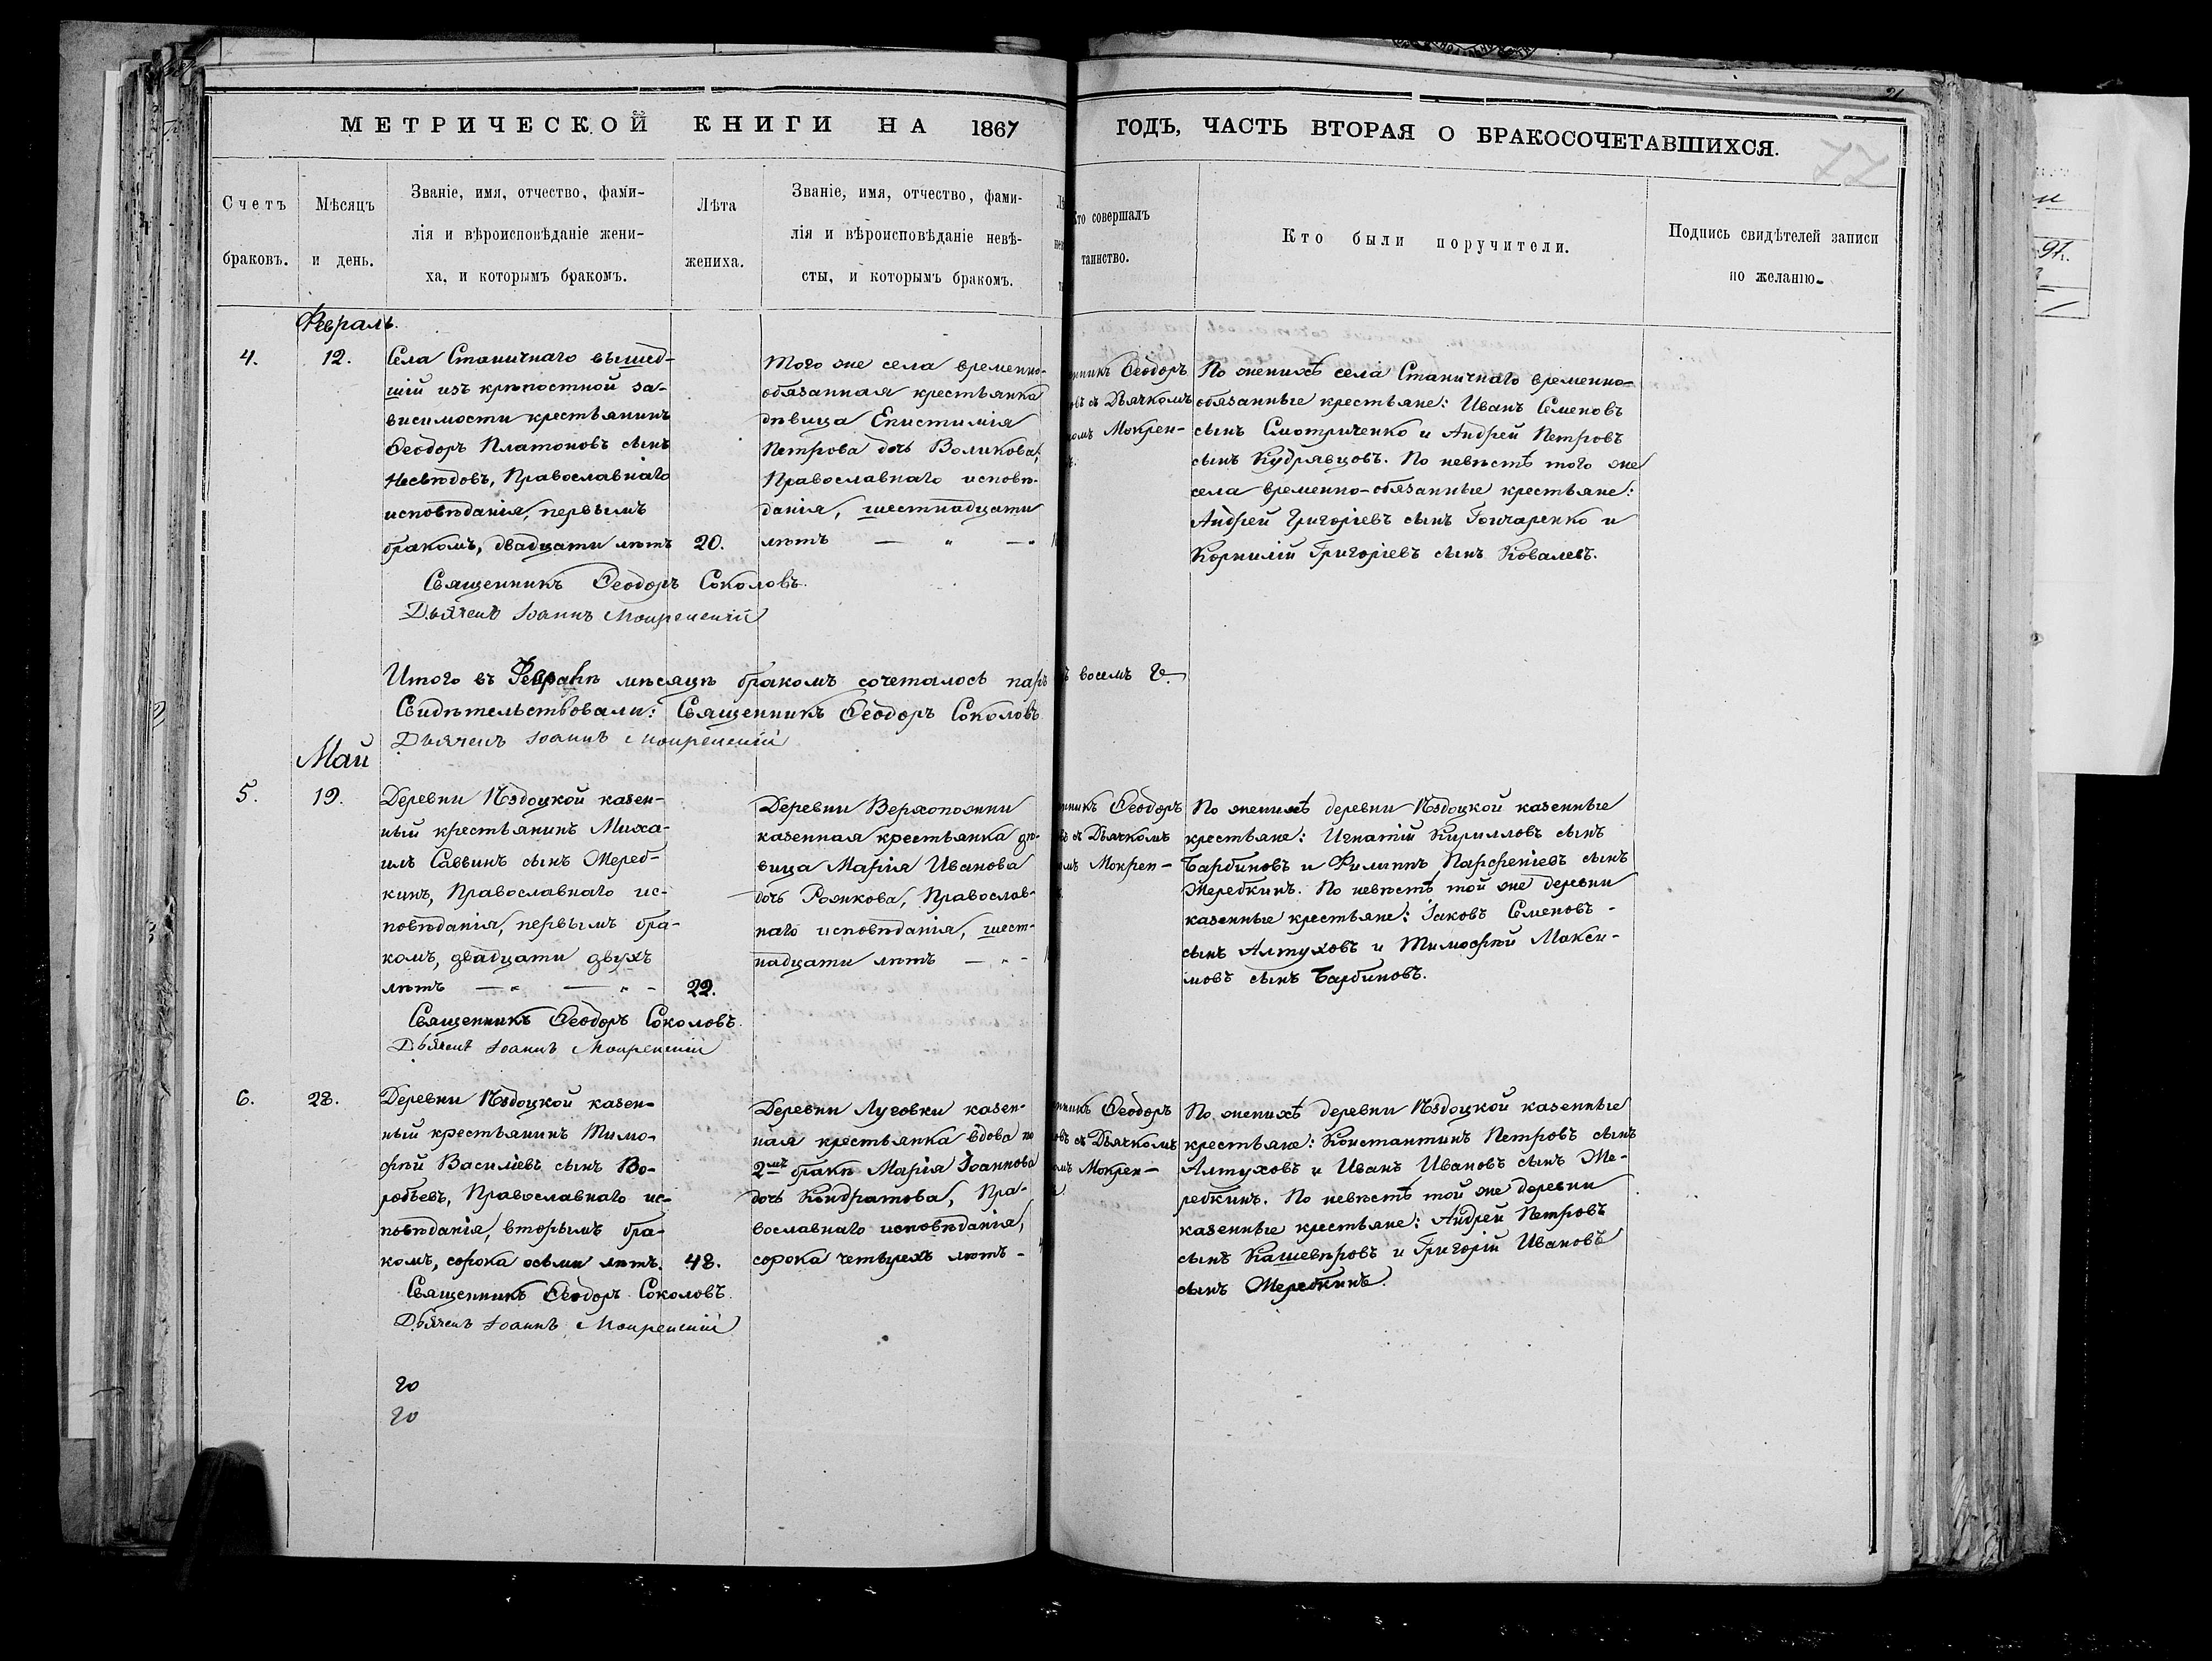 21
77
МЕТРИЧЕСКОЙ КНИГИ НА 1867
ГОДЪ, ЧАСТЬ ВТОРАЯ О БРАКОСОЧЕТАВШИХСЯ.
Счетъ
браковъ.
Мѣсяцъ
и день.
Званіе, имя, отчество, фами-
лія и вѣроисповѣданіе жени-
ха, и которымъ бракомъ.
Лѣта
жениха.
Званіе, имя, отчество, фами-
лія и вѣроисповѣданіе невѣ-
сты, и которымъ бракомъ.
Кто совершалъ
таинство.
Кто были поручители.
Подпись свидѣтелей записи
по желанію.
Февраль.
4.
12.
Села Станичнаго вышед-
шій изъ крѣпостной за-
висимости крестьянинъ
Ѳеодоръ Платоновъ сынъ
Несвѣдовъ, Православнаго
исповѣданія, первымъ
бракомъ, двадцати лѣтъ
20.
Того же села временно-
обязанная крестьянка
дѣвица Епистимія
Петрова дочь Воликова,
Православнаго исповѣ-
данія, шестнадцати
лѣтъ — „ — „
нникъ Ѳеодоръ
овъ съ Дьячкомъ
омъ Мокрен-
По женихѣ села Станичнаго временно-
обязанные крестьяне: Иванъ Семеновъ
сынъ Смотриченко и Андрей Петровъ
сынъ Кудрявцовъ. По невѣстѣ того же
села временно-обязанные крестьяне:
Андрей Григоріевъ сынъ Гончаренко и
Корнилій Григоріевъ сынъ Ковалевъ.
Священникъ Ѳеодоръ Соколовъ.
Дьячекъ Іоаннъ Мокренскій
Итого въ Февралѣ мѣсяцѣ бракомъ сочеталось паръ
восемь 8.
Свидѣтельствовали: Священникъ Ѳеодоръ Соколовъ
Дьячекъ Іоаннъ Мокренскій
Май
5.
19.
Деревни Ѣздоцкой казен-
ный крестьянинъ Миха-
илъ Саввинъ сынъ Жереб-
кинъ, Православнаго ис-
повѣданія, первымъ бра-
комъ, двадцати двухъ
лѣтъ — „ — „ -
22.
Деревни Верхопожни
казенная крестьянка дѣ-
вица Марія Иванова
дочь Рожкова, Православ-
наго исповѣданія, шест-
надцати лѣтъ — „ -
нникъ Ѳеодоръ
въ съ Дьячкомъ
омъ Мокрен-
По женихѣ деревни Ѣздоцкой казенные
крестьяне: Игнатій Кирилловъ сынъ
Барбиновъ и Филиппъ Парфеніевъ сынъ
Жеребкинъ. По невѣстѣ той же деревни
казенные крестьяне: Іаковъ Семеновъ -
сынъ Алтуховъ и Тимофѣй Макси-
мовъ сынъ Барбиновъ.
Священникъ Ѳеодоръ Соколовъ.
Дьячекъ Іоаннъ Мокренскій
6.
28.
Деревни Ѣздоцкой казен-
ный крестьянинъ Тимо-
фѣй Василіевъ сынъ Во-
робьевъ, Православнаго ис-
повѣданія, вторымъ бра-
комъ, сорока осьми лѣтъ.
48.
Деревни Луговки казен-
ная крестьянка вдова по
2мъ бракѣ Марія Іоаннова
дочь Кондратова, Пра-
вославнаго исповѣданія,
сорока четырехъ лѣтъ -
нникъ Ѳеодоръ
овъ съ Дьячкомъ
омъ Мокрен-
По женихѣ деревни Ѣздоцкой казенные
крестьяне: Константинъ Петровъ сынъ
Алтуховъ и Иванъ Ивановъ сынъ Же-
ребкинъ. По невѣстѣ той же деревни
казенные крестьяне: Андрей Петровъ
сынъ Кашевѣровъ и Григорій Ивановъ
сынъ Жеребкинъ.
Священникъ Ѳеодоръ Соколовъ.
Дьячекъ Іоаннъ Мокренскій
20
20